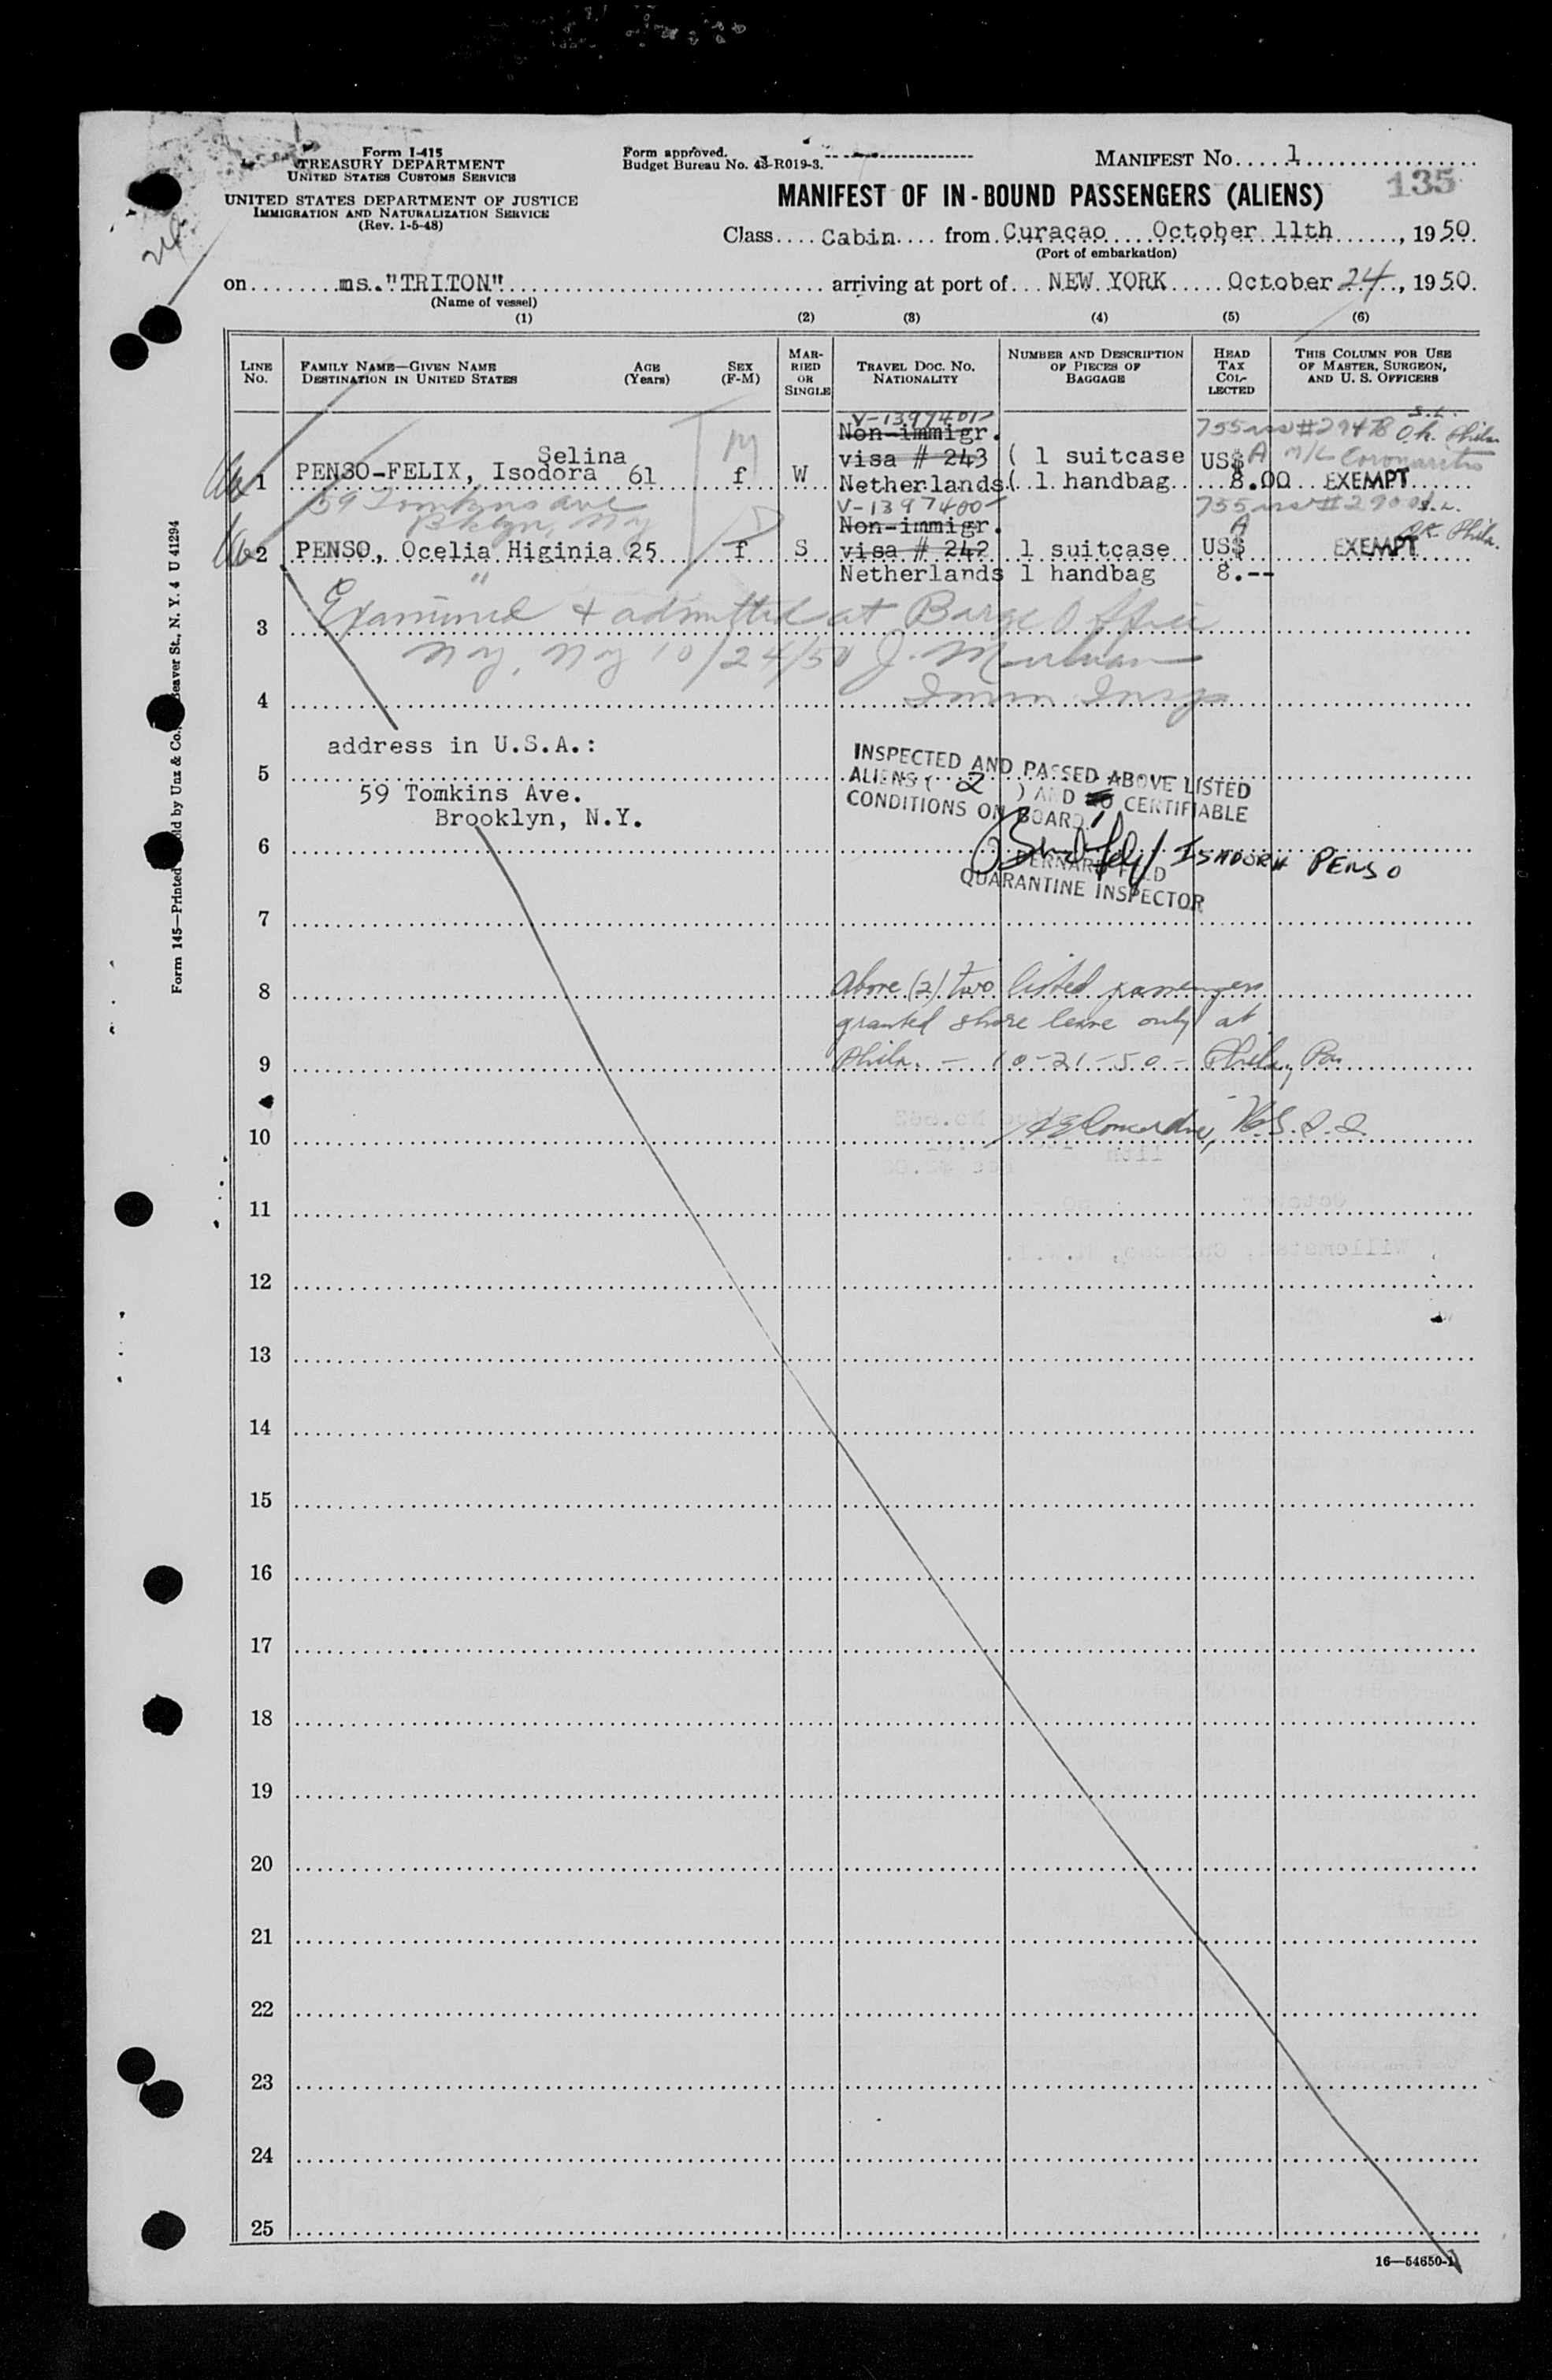 Form I-415
TREASURY DEPARTMENT
UNITED STATES CUSTOMS SERVICE
UNITED STATES DEPARTMENT OF JUSTICE
IMMIGRATION AND NATURALIZATION SERVICE
(Rev. 1-5-48)
Form approved.
Budget Bureau No. 43-R019-3.
MANIFEST No. 1
135
MANIFEST OF IN-BOUND PASSENGERS (ALIENS)
Class Cabin from Curaçao October 11th, 1950
(Port of embarkation)
on ms. "TRITON" arriving at port of NEW YORK October 24, 1950.
(Name of vessel)
(1) (2) (3) (4) (5) (6)
LINE No.
FAMILY NAME—GIVEN NAME
DESTINATION IN UNITED STATES
AGE (Years)
SEX (F-M)
MARRIED OR SINGLE
TRAVEL DOC. No. NATIONALITY
NUMBER AND DESCRIPTION OF PIECES OF BAGGAGE
HEAD TAX COLLECTED
THIS COLUMN FOR USE OF MASTER, SURGEON, AND U. S. OFFICERS
V-1397401
Non-immigr. S.L.
Selina visa # 243 ( 1 suitcase US$ O.K. Phila
1 PENSO-FELIX, Isodora 61 f W Netherlands ( 1 handbag 8.00 EXEMPT
59 Tomkins ave
Bklyn, NY
V-1397400
Non-immigr. S.L.
2 PENSO, Ocelia Higinia 25 f S visa # 242 1 suitcase US$ EXEMPT O.K. Phila.
" Netherlands 1 handbag 8.--
Examined & admitted at Barge Office
3
NY, NY 10/24/50 J.
4 Imm Insp
address in U.S.A.:
5
59 Tomkins Ave.
Brooklyn, N.Y.
INSPECTED AND PASSED ABOVE LISTED
ALIENS ( 2 ) AND NO CERTIFIABLE
CONDITIONS ON BOARD. 1
6 ISADORA PENSO
BERNARD FELD
QUARANTINE INSPECTOR
7
8 Above (2) two listed passengers
granted shore leave only at
9 Phila. — 10-21-50 - Phila, Pa
10
11
12
13
14
15
16
17
18
19
20
21
22
23
24
25
16—54650-1